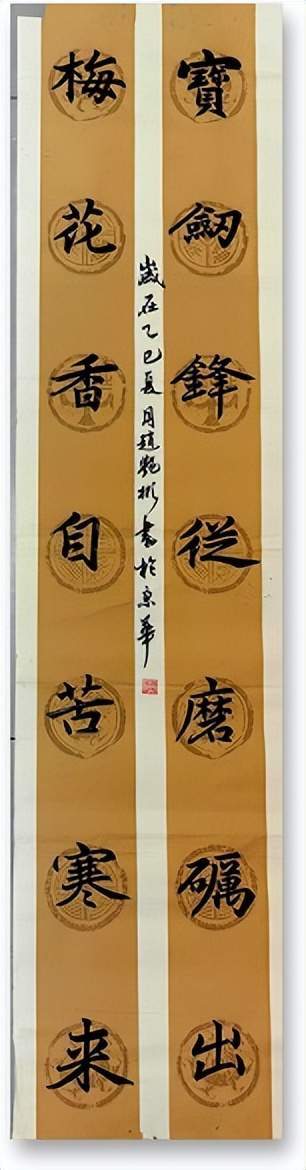 寶劒鋒從磨礪出
梅花香自苦寒来
歲在乙巳夏月趙艷彬書於京華